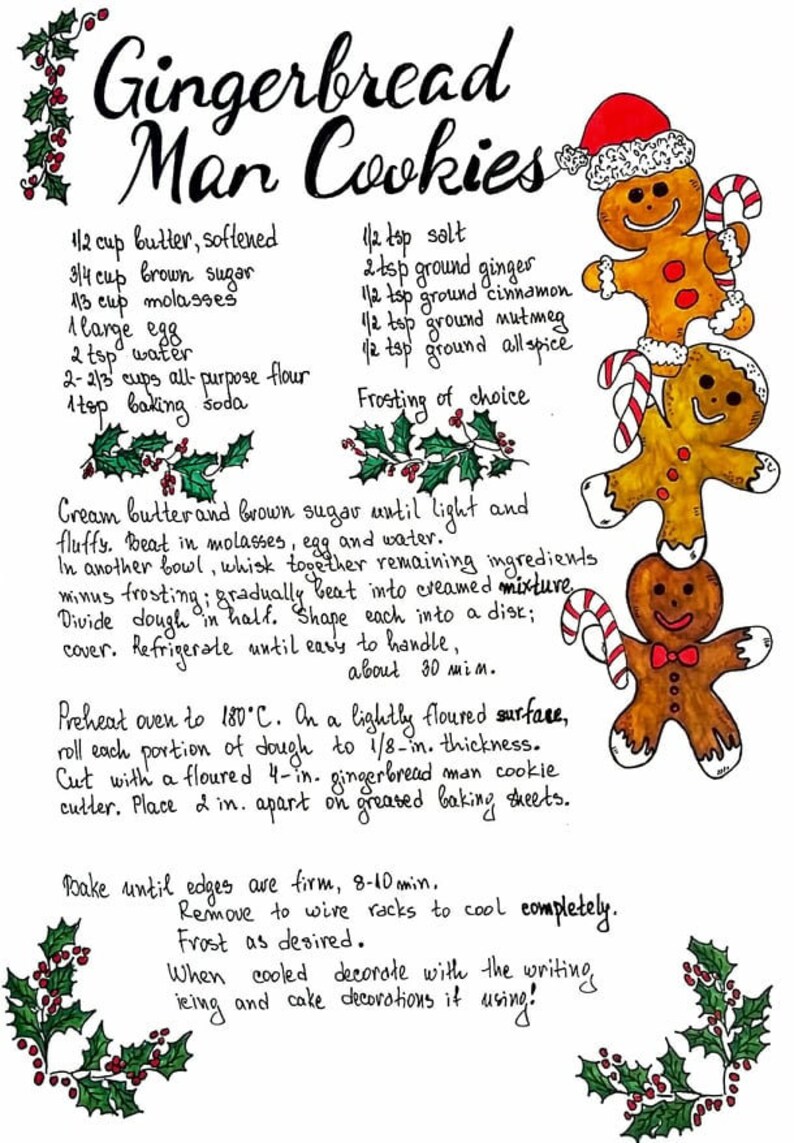 Gingerbread
Man Cookies
1/2 cup butter, softened
3/4 cup brown sugar
1/3 cup molasses
1 large egg
2 tsp water
2-2/3 cups all-purpose flour
1 tsp baking soda
1/2 tsp salt
2 tsp ground ginger
1/2 tsp ground cinnamon
1/2 tsp ground nutmeg
1/2 tsp ground allspice
Frosting of choice
Cream butter and brown sugar until light and
fluffy. Beat in molasses, egg and water.
In another bowl, whisk together remaining ingredients
minus frosting; gradually beat into creamed mixture.
Divide dough in half. Shape each into a disk;
cover. Refrigerate until easy to handle,
about 30 min.
Preheat oven to 180°C. On a lightly floured surface,
roll each portion of dough to 1/8-in. thickness.
Cut with a floured 4-in. gingerbread man cookie
cutter. Place 2 in. apart on greased baking sheets.
Bake until edges are firm, 8-10 min.
Remove to wire racks to cool completely.
Frost as desired.
When cooled decorate with the writing
icing and cake decorations if using!